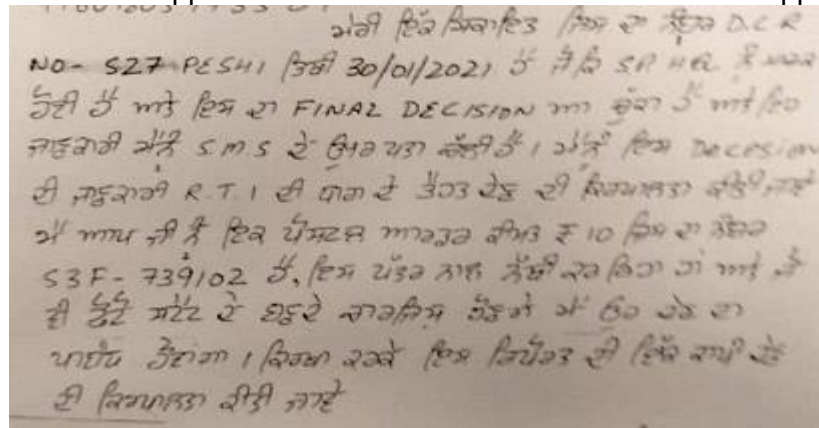 ਮੇਰੀ ਇੱਕ ਸ਼ਿਕਾਇਤ ਜਿਸ ਦਾ ਨੰਬਰ D.C.R
NO- 527-PESHI ਮਿਤੀ 30/01/2021 ਹੈ ਜੋ ਕਿ SP HQ. ਨੂੰ ਮਾਰਕ
ਹੋਈ ਹੈ ਅਤੇ ਇਸ ਦਾ FINAL DECISION ਆ ਚੁੱਕਾ ਹੈ ਅਤੇ ਇਹ
ਜਾਣਕਾਰੀ ਮੈਨੂੰ S.M.S ਦੇ ਉਪਰ ਪਤਾ ਚੱਲੀ ਹੈ। ਮੈਨੂੰ ਇਸ DECESION
ਦੀ ਜਾਣਕਾਰੀ R.T.I ਦੀ ਧਾਰਾ ਦੇ ਤਹਤ ਦੇਣ ਦੀ ਕਿਰਪਾਲਤਾ ਕੀਤੀ ਜਾਵੇ
ਮੈਂ ਆਪ ਜੀ ਨੂੰ ਇਕ ਪੋਸਟਲ ਆਰਡਰ ਕੀਮਤ ₹ 10 ਜਿਸ ਦਾ ਨੰਬਰ
53F-739102 ਹੈ, ਇਸ ਪੱਤਰ ਨਾਲ ਨੱਥੀ ਕਰ ਰਿਹਾ ਹਾਂ ਅਤੇ ਜੋ
ਵੀ ਫੋਟੋ ਸਟੇਟ ਦੇ ਬਣਦੇ ਚਾਰਜਿਸ ਹੋਣਗੇ ਮੈਂ ਉਹ ਦੇਣ ਦਾ
ਪਾਬੰਧ ਹੋਵਾਂਗਾ। ਕਿਰਪਾ ਕਰਕੇ ਇਸ ਰਿਪੋਰਟ ਦੀ ਇੱਕ ਕਾਪੀ ਦੇਣ
ਦੀ ਕਿਰਪਾਲਤਾ ਕੀਤੀ ਜਾਵੇ